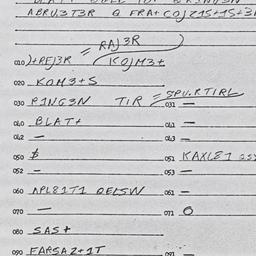 ABRU.3T3R Q FRA+ COJ21S+1S+3
= RAJ3R
010 )+REJ3R (KOJM3+
020 KOM3+S
030 P1NG3N T1R = SPU.RT1RL
031 —
040 BLAT+ 041 —
042 — 043 —
050 $ 051 KAXLE1
052 — 053 —
060 APL81T1 QELSW 061 —
070 — 071 O
080 SAS+
090 FARSA2+1T 091 —